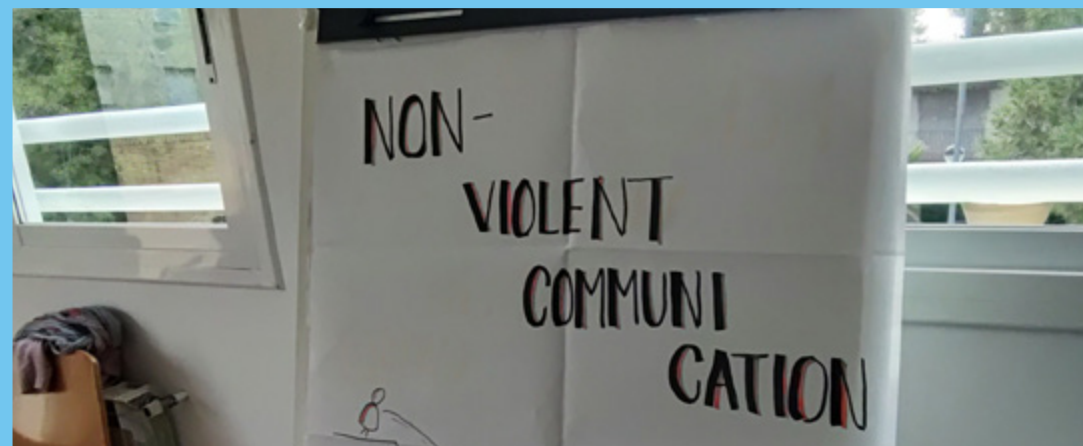 NON-
VIOLENT
COMMUNI
CATION